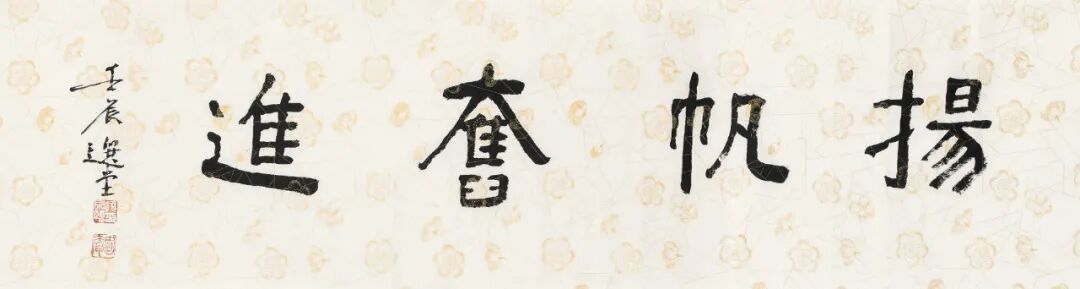 揚帆奮進
壬辰選堂